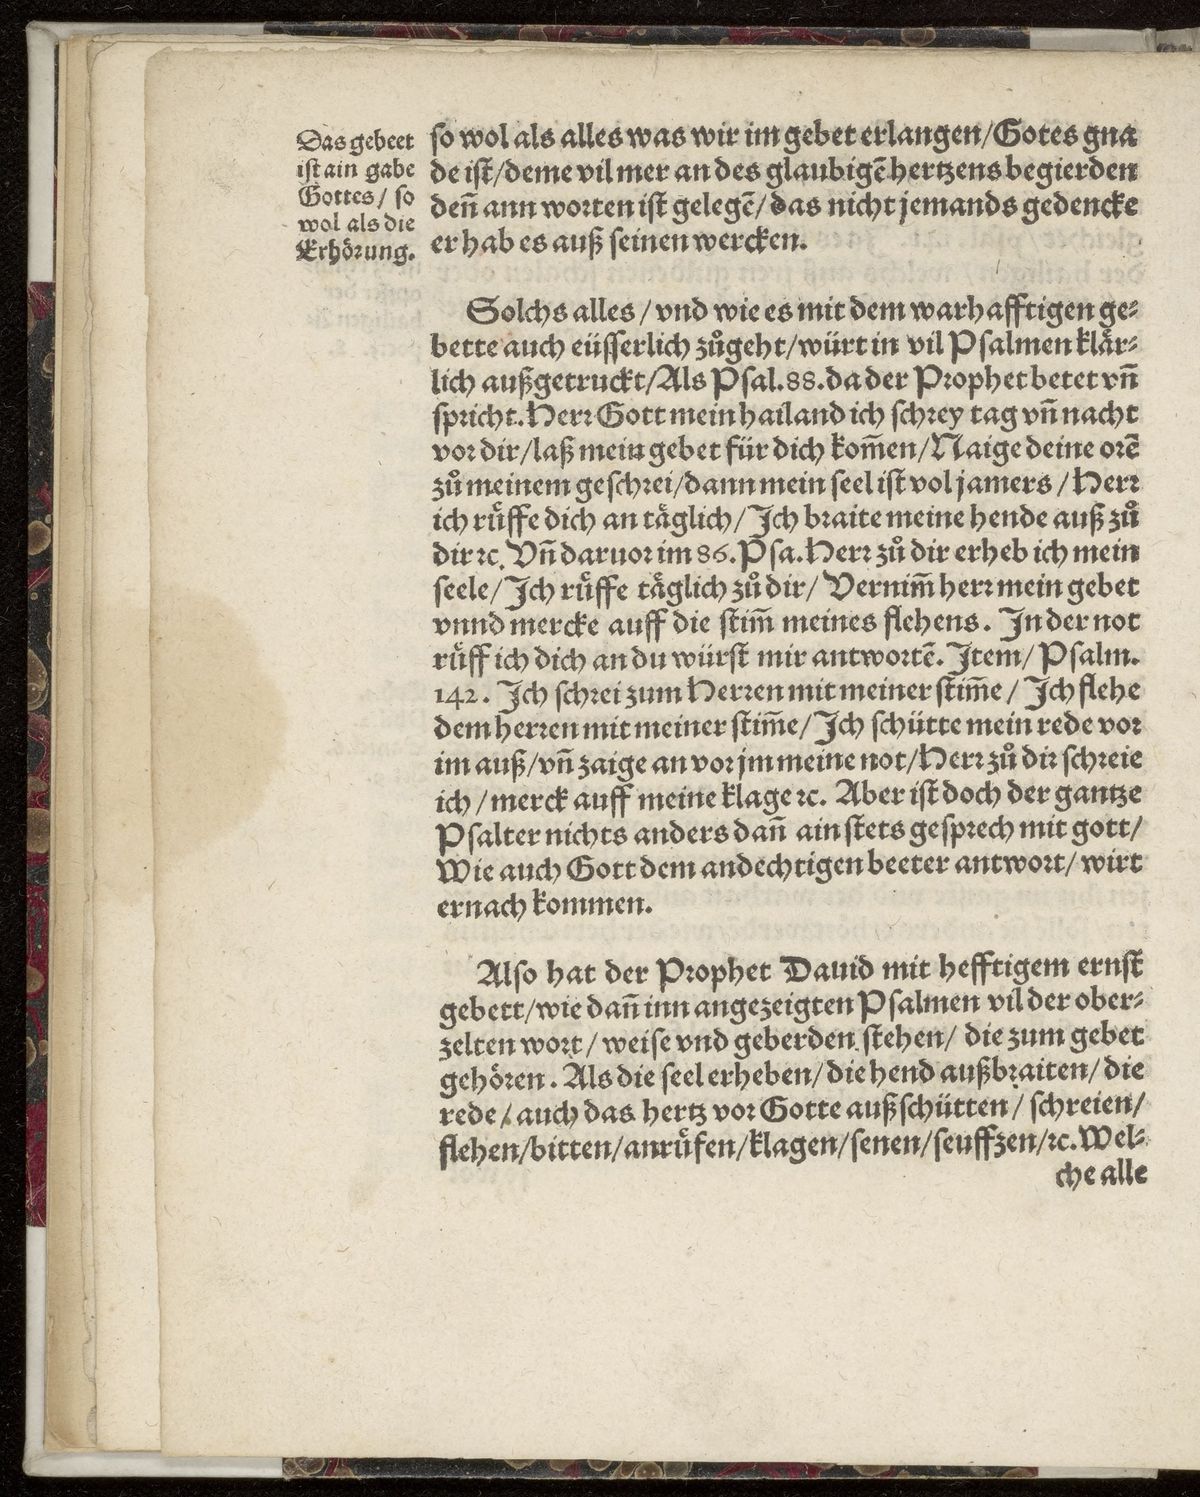 Das gebeet
ist ain gabe
Gottes / so
wol als die
Erhörung.
so wol als alles was wir im gebet erlangen/Gotes gna
de ist/deme vil mer an des glaubigē hertzens begierden
deñ ann worten ist gelegē/das nicht jemands gedencke
er hab es auß seinen wercken.
Solchs alles / vnd wie es mit dem warhafftigen ge⸗
bette auch eüsserlich zůgeht/würt in vil Psalmen klår⸗
lich außgetruckt/Als Psal.88.da der Prophet betet vñ
spricht.Herr Gott mein hailand ich schrey tag vñ nacht
vor dir/laß mein gebet für dich kom̃en/Naige deine orē
zů meinem geschrei/dann mein seel ist vol jamers / Herr
ich růffe dich an tåglich/ Jch braite meine hende auß zů
dir ꝛc. Vñ daruor im 86.Psa.Herr zů dir erheb ich mein
seele/ Jch růffe tåglich zů dir/ Vernim̃ herr mein gebet
vnnd mercke auff die stim̃ meines flehens. Jn der not
růff ich dich an du würst mir antwortē. Jtem/ Psalm.
142. Jch schrei zum Herren mit meiner stim̃e / Jch flehe
dem herren mit meiner stim̃e/ Jch schütte mein rede vor
im auß/vñ zaige an vor jm meine not/Herr zů dir schreie
ich / merck auff meine klage ꝛc. Aber ist doch der gantze
Psalter nichts anders dañ ain stets gesprech mit gott/
Wie auch Gott dem andechtigen beeter antwort/ wirt
ernach kommen.
Also hat der Prophet Dauid mit hefftigem ernst
gebett/wie dañ inn angezeigten Psalmen vil der ober⸗
zelten wort/ weise vnd geberden stehen/ die zum gebet
gehören. Als die seel erheben/die hend außbraiten/ die
rede / auch das hertz vor Gotte außschütten / schreien/
flehen/bitten/anrůfen/klagen/senen/seuffzen/ꝛc. Wel⸗
che alle